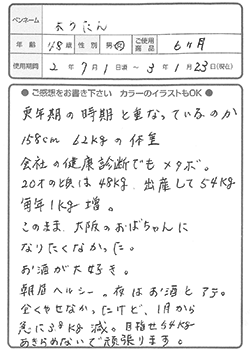 ペンネーム
よりたん
年齢 48 性別 男・女 ご使用商品 6ヶ月
使用期間 2年7月1日頃〜3年1月23日(現在)
● ご感想をお書き下さい カラーのイラストもOK ●
更年期の時期と重なっているのか
158cm 62kgの体重
会社の健康診断でもメタボ。
20才の頃は48kg. 出産して54kg
毎年1kg増。
このまま、大阪のおばちゃんに
なりたくなかった。
お酒が大好き。
朝昼ヘルシー。夜はお酒と
全くやせなかったけど、1月から
急に3.8kg減。目指せ54kg
あきらめないで頑張ります。